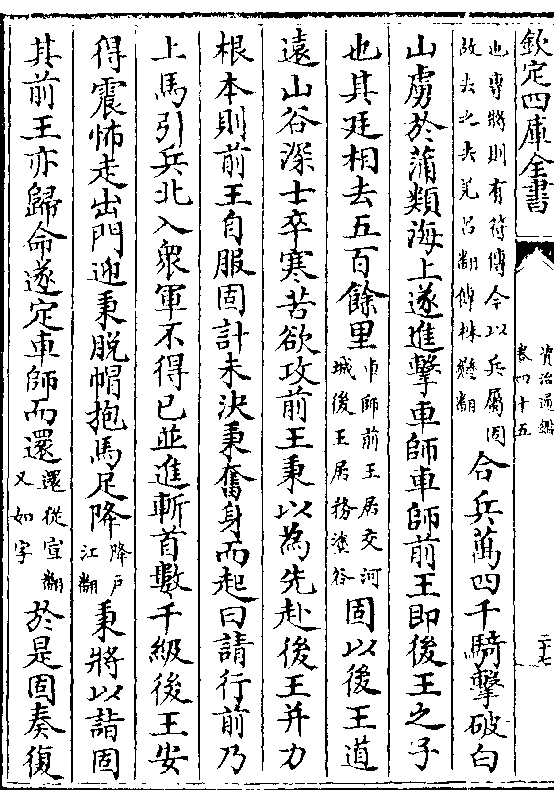 欽定四庫全書
資治通鑑
卷四十五
二十七
也專將則有符傳今以兵屬固
故去之去羌呂翻傳株戀翻
合兵萬四千騎擊破白
山虜於蒲類海上遂進擊車師車師前王即後王之子
也其廷相去五百餘里
車師前王居交河
城後王居務塗谷
固以後王道
遠山谷深士卒寒苦欲攻前王秉以為先赴後王并力
根本則前王自服固計未決秉奮身而起曰請行前乃
上馬引兵北入衆軍不得已並進斬首數千級後王安
得震怖走出門迎秉脱帽抱馬足降
降户
江翻
秉將以詣固
其前王亦歸命遂定車師而還
還從宣翻
又如字
於是固奏復